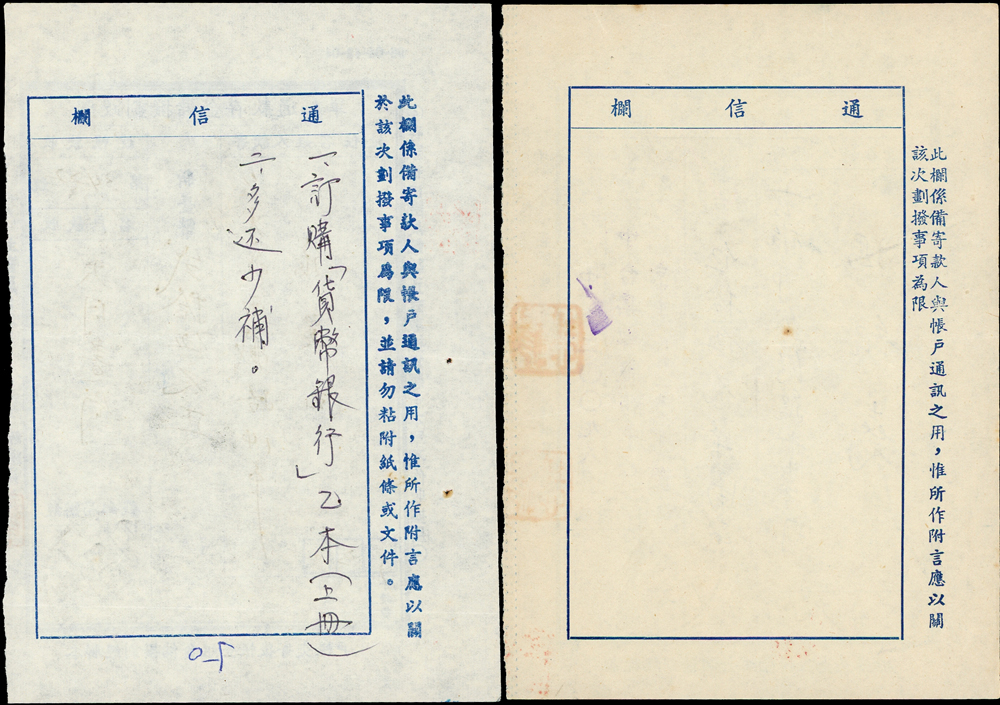 此欄係備寄款人與帳戶通訊之用，惟所作附言應以關
於該次劃撥事項為限，並請勿粘附紙條或文件。
通信欄
一、訂購「貨幣銀行」乙本（上冊）
二、多還少補。
此欄係備寄款人與帳戶通訊之用，惟所作附言應以關
該次劃撥事項為限
通信欄